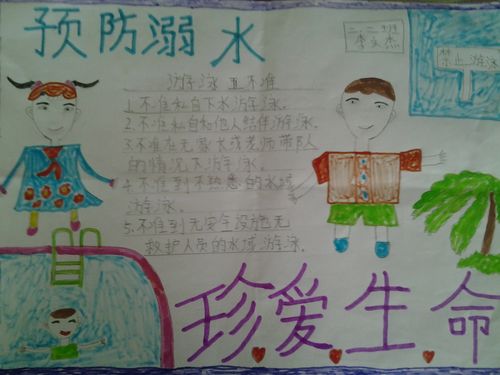 预防溺水
二、二
李文杰
禁止游泳
游泳五不准
1.不准私自下水游泳.
2.不准私自和他人结伴游泳.
3.不准在无家长或老师带队
的情况下游泳.
4.不准到不熟悉的水域
游泳.
5.不准到无安全设施无
救护人员的水域游泳.
珍爱生命